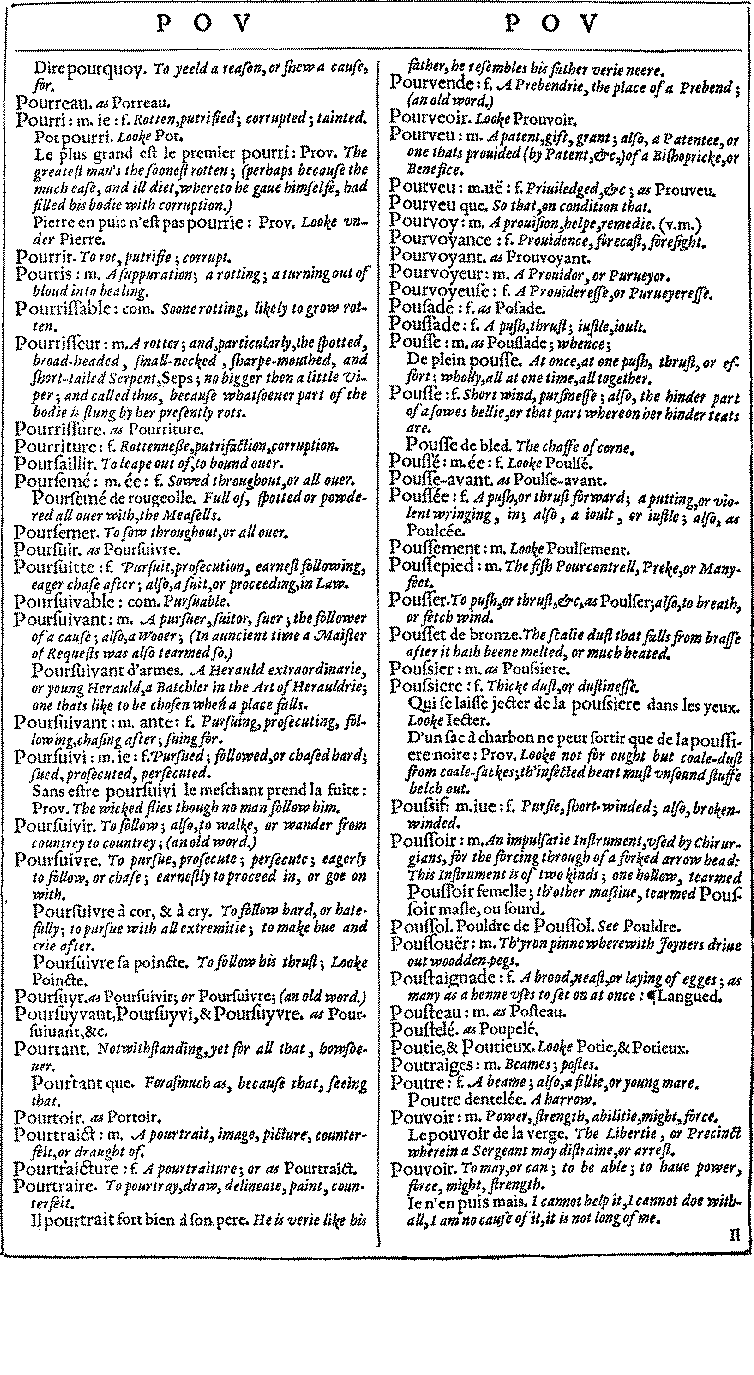 P O V
P O V
Dire pourquoy. To yeeld a reaſon, or ſhew a cauſe,
for.
Pourreau. as Porreau.
Pourri: m. ie: f. Rotten, putrified; corrupted; tainted.
Pot pourri. Looke Pot.
Le plus grand eſt le premier pourri: Prov. The
greateſt man's the ſooneſt rotten; (perhaps becauſe the
much eaſe, and ill diet, whereto he gaue himſelfe, had
filled his bodie with corruption.)
Pierre en puic n'eſt pas pourrie: Prov. Looke vn-
der Pierre.
Pourrir. To rot, putrifie; corrupt.
Pourris: m. A ſuppuration; a rotting; a turning out of
bloud into healing.
Pourriſſable: com. Soone rotting, likely to grow rot-
ten.
Pourriſſeur: m. A rotter; and, particularly, the ſpotted,
broad-headed, ſmall-necked, ſharpe-mouthed, and
ſhort-tailed Serpent, Seps; no bigger then a little Vi-
per; and called thus, becauſe whatſoeuer part of the
bodie is ſtung by her preſently rots.
Pourriſſure. as Pourriture.
Pourriture: f. Rottenneſſe, putrifaction, corruption.
Pourſaillir. To leape out of, to bound ouer.
Pourſemé: m. ée: f. Sowed throughout, or all ouer.
Pourſemé de rougeolle. Full of, ſpotted or powde-
red all ouer with, the Meaſells.
Pourſemer. To ſow throughout, or all ouer.
Pourſuir. as Pourſuivre.
Pourſuitte: f. Purſuit, proſecution, earneſt following,
eager chaſe after; alſo, a ſuit, or proceeding, in Law.
Pourſuivable: com. Purſuable.
Pourſuivant: m. A purſuer, ſuitor, ſuer; the follower
of a cauſe; alſo, a wooer; (In auncient time a Maiſter
of Requeſts was alſo tearmed ſo.)
Pourſuivant d'armes. A Herauld extraordinarie,
or young Herauld, a Batchler in the Art of Herauldrie;
one thats like to be choſen when a place falls.
Pourſuivant: m. ante: f. Purſuing, proſecuting, fol-
lowing, chaſing after; ſuing for.
Pourſuivi: m. ie: f. Purſued; followed, or chaſed hard;
ſued, proſecuted, perſecuted.
Sans eſtre pourſuivi le meſchant prend la fuite:
Prov. The wicked flies though no man follow him.
Pourſuivir. To follow; alſo, to walke, or wander from
countrey to countrey; (an old word.)
Pourſuivre. To purſue, proſecute; perſecute; eagerly
to follow, or chaſe; earneſtly to proceed in, or goe on
with.
Pourſuivre à cor, & à cry. To follow hard, or hate-
fully; to purſue with all extremitie; to make hue and
crie after.
Pourſuivre ſa poincte. To follow his thruſt; Looke
Poincte.
Pourſuyr. as Pourſuivir; or Pourſuivre; (an old word.)
Pourſuyvant, Pourſuyvi, & Pourſuyvre. as Pour-
ſuivant, &c.
Pourtant. Notwithſtanding, yet for all that, howſoe-
uer.
Pourtant que. Foraſmuch as, becauſe that, ſeeing
that.
Pourtoir. as Portoir.
Pourtraict: m. A pourtrait, image, picture, counter-
feit, or draught of.
Pourtraicture: f. A pourtraiture; or as Pourtraict.
Pourtraire. To pourtray, draw, delineate, paint, coun-
terfeit.
Il pourtrait fort bien à ſon pere. He is verie like his
father, he reſembles his father verie neere.
Pourvende: f. A Prebendrie, the place of a Prebend;
(an old word.)
Pourveoir. Looke Prouvoir.
Pourveu: m. A patent, gift, grant; alſo, a Patentee, or
one thats prouided (by Patent, &c,) of a Biſhopricke, or
Benefice.
Pourveu: m. uë: f. Priuiledged, &c; as Prouveu.
Pourveu que. So that, on condition that.
Pourvoy: m. A prouiſion, helpe, remedie. (v.m.)
Pourvoyance: f. Prouidence, forecaſt, foreſight.
Pourvoyant. as Prouvoyant.
Pourvoyeur: m. A Prouidor, or Purueyor.
Pourvoyeuſe: f. A Prouidereſſe, or Purueyereſſe.
Pouſade: f. as Poſade.
Pouſſade: f. A puſh, thruſt; iuſtle, ioult.
Pouſſe: m. as Pouſſade; whence;
De plein pouſſe. At once, at one puſh, thruſt, or ef-
fort; wholly, all at one time, all together.
Pouſſe: f. Short wind, purſineſſe; alſo, the hinder part
of a ſowes bellie, or that part whereon her hinder teats
are.
Pouſſe de bled. The chaffe of corne.
Pouſſé: m. ée: f. Looke Poulſé.
Pouſſe-avant. as Poulſe-avant.
Pouſſée: f. A puſh, or thruſt forward; a putting, or vio-
lent wringing, in; alſo, a ioult, or iuſtle; alſo, as
Poulcée.
Pouſſement: m. Looke Poulſement.
Pouſſepied: m. The fiſh Pourcentrell, Preke, or Many-
feet.
Pouſſer. To puſh, or thruſt, &c, as Poulſer; alſo, to breath,
or fetch wind.
Pouſſet de bronze. The ſcalie duſt that falls from braſſe
after it hath beene melted, or much heated.
Pouſſier: m. as Pouſſiere.
Pouſſiere: f. Thicke duſt, or duſtineſſe.
Qui ſe laiſſe jecter de la pouſſiere dans les yeux.
Looke Iecter.
D'un ſac à charbon ne peut ſortir que de la pouſſi-
ere noire: Prov. Looke not for ought but coale-duſt
from coale-ſackes; th'infected heart muſt vnſound ſtuffe
belch out.
Pouſſif: m. iue: f. Purſie, ſhort-winded; alſo, broken-
winded.
Pouſſoir: m. An impulſarie Inſtrument, vſed by Chirur-
gians, for the forcing through of a forked arrow head:
This Inſtrument is of two kinds; one hollow, tearmed
Pouſſoir femelle; th'other maſſiue, tearmed Pouſ-
ſoir maſle, ou ſourd.
Pouſſol. Pouldre de Pouſſol. See Pouldre.
Pouſſouër: m. Th'yron pinne wherewith Joyners driue
out wodden pegs.
Pouſtaignade: f. A brood, neaſt, or laying of egges; as
many as a henne vſes to ſet on at once: ¶Langued.
Pouſteau: m. as Poſteau.
Pouſtelé. as Poupelé.
Poutie, & Poutieux. Looke Potie, & Potieux.
Poutraiges: m. Beames; poſtes.
Poutre: f. A beame; alſo, a fillie, or young mare.
Poutre dentelée. A harrow.
Pouvoir: m. Power, ſtrength, abilitie, might, force.
Le pouvoir de la verge. The Libertie, or Precinct
wherein a Sergeant may diſtraine, or arreſt.
Pouvoir. To may, or can; to be able; to haue power,
force, might, ſtrength.
Ie n'en puis mais. I cannot help it, I cannot doe with-
all, I am no cauſe of it, it is not long of me.
Il